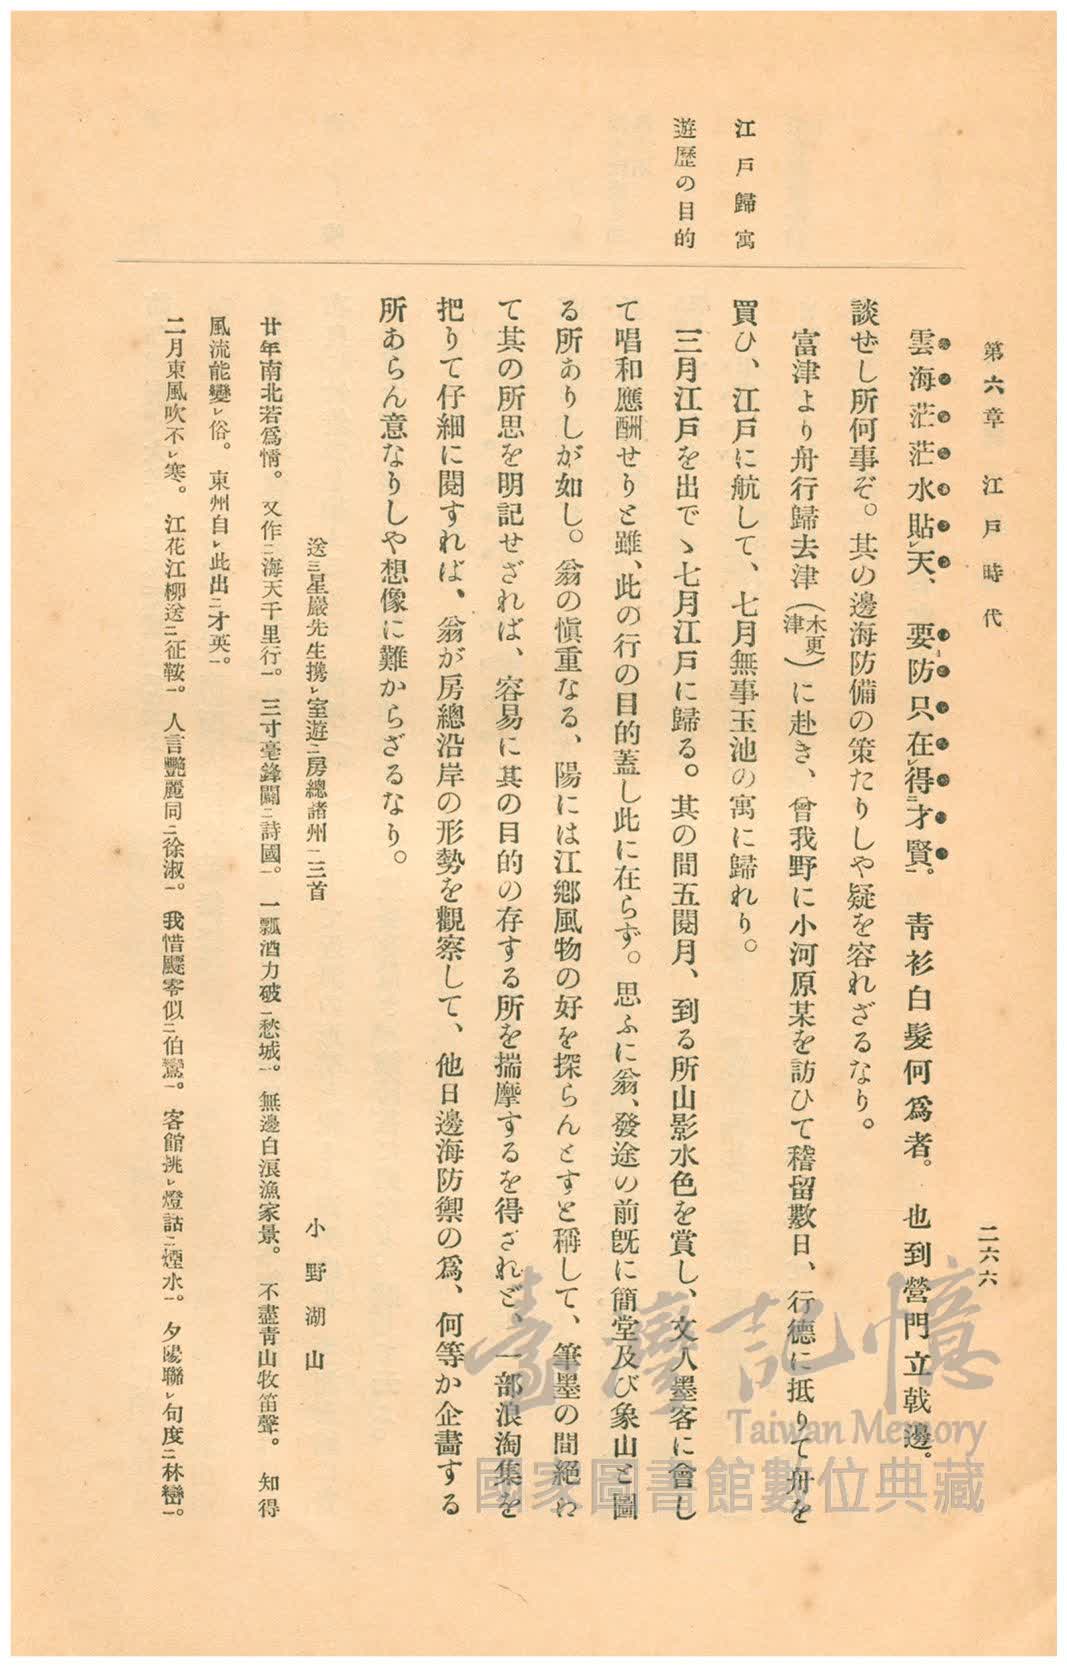 第六章 江戸時代 二六六
江戸歸寓
遊歷の目的
雲海茫茫水貼レ天、要防只在レ得二才賢一。靑衫白髮何爲者。也到營門立戟邊。
談ぜし所何事ぞ。其の邊海防備の策たりしや疑を容れざるなり。
富津より舟行歸去津(木更津)に赴き、曾我野に小河原某を訪ひて稽留數日、行德に抵りて舟を
買ひ、江戸に航して、七月無事玉池の寓に歸れり。
三月江戸を出でゝ七月江戸に歸る。其の間五閱月、到る所山影水色を賞し、文人墨客に會し
て唱和應酬せりと雖、此の行の目的蓋し此に在らず。思ふに翁、發途の前既に簡堂及び象山と圖
る所ありしが如し。翁の愼重なる、陽には江鄕風物の好を探らんとすと稱して、筆墨の間絕わ
て其の所思を明記せざれば、容易に其の目的の存する所を揣摩するを得ざれど、一部浪淘集を
把りて仔細に閱すれば、翁が房總沿岸の形勢を觀察して、他日邊海防禦の爲、何等か企畫する
所あらん意なりしや想像に難からざるなり。
送三星巖先生携レ室遊二房總諸州一三首 小野湖山
廿年南北若爲情。又作二海天千里行一。三寸毫鋒闢二詩國一。一瓢酒力破二愁城一。無邊白浪漁家景。不盡靑山牧笛聲。知得
風流能變レ俗。東州自レ此出二才英一。
二月東風吹不レ寒。江花江柳送二征鞍一。人言艷麗同二徐淑一。我惜飄零似二伯鸞一。客館挑レ燈話二煙水一。夕陽聯レ句度二林巒一。
臺灣記憶
Taiwan Memory
國家圖書館數位典藏